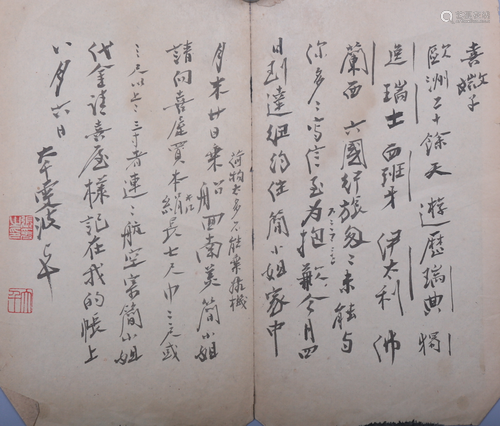 歐洲二十餘天遊歷瑞典獨
逸瑞士西班牙伊太利佛
蘭西六國行旅匆匆未能與
你多多寫信至為抱歉今月四
日到達紐約住簡小姐家中
荷物太多不能乘飛機
月末廿日乘船回南美簡小姐
請向喜屋買本絹長七尺巾二尺或
二尺以上三寸者連連航空寄簡小姐
代金請喜屋樣記在我的帳上
八月六日